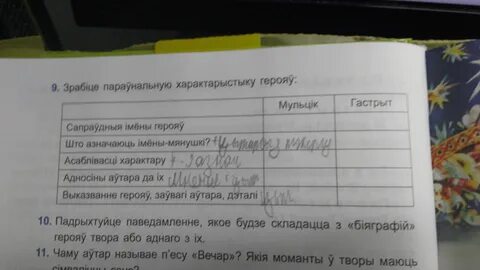 9. Зрабіце параўнальную характарыстыку герояў:
Мульцік Гастрыт
Сапраўдныя імёны герояў
Што азначаюць імёны-мянушкі?
Асаблівасці характару
Адносіны аўтара да іх
Выказванне герояў, заўвагі аўтара, дэталі
10. Падрыхтуйце паведамленне, якое будзе складацца з «біяграфій»
герояў твора або аднаго з іх.
11. Чаму аўтар называе п'есу «Вечар»? Якія моманты ў творы маюць